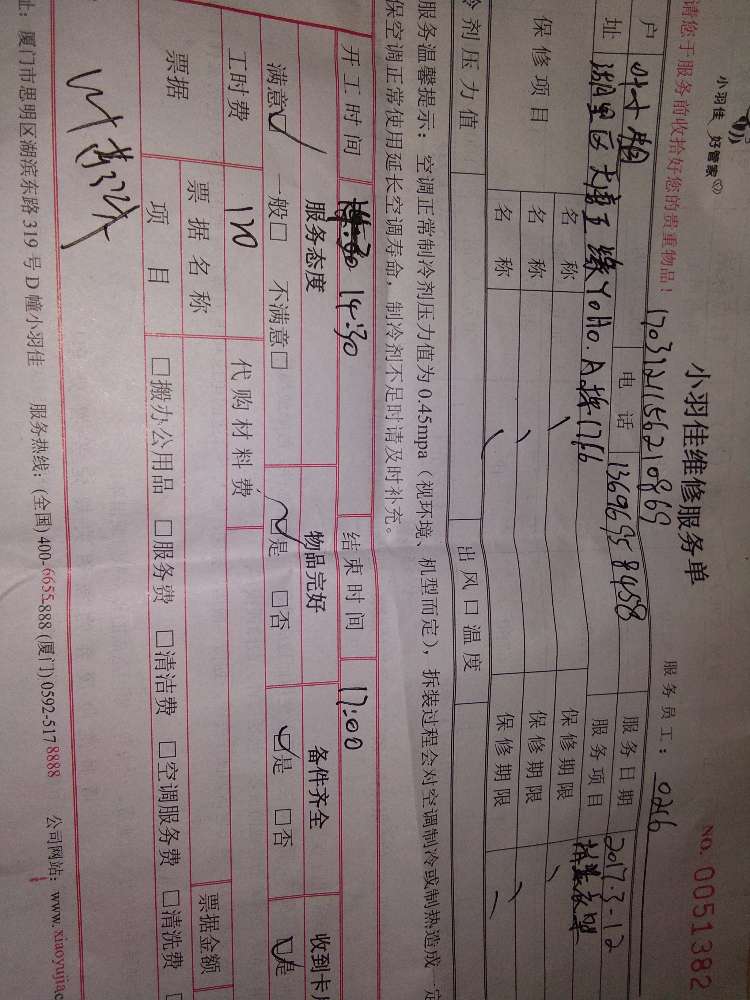 小羽佳 好管家
小羽佳维修服务单
NO. 0051382
请您于服务前收拾好您的贵重物品!
1703121156210869
服务员工: 0216
户
电话 13696958458
服务日期 2017.3-12
址 湖里区 YoHo.A栋1766
服务项目
保修项目 名称 保修期限
名称 保修期限
名称 保修期限
冷剂压力值 出风口温度
服务温馨提示: 空调正常制冷剂压力值为0.45mpa(视环境、机型而定), 拆装过程会对空调制冷或制热造成一定
保空调正常使用延长空调寿命, 制冷剂不足时请及时补充。
开工时间 14:30 结束时间 17:00
服务态度 物品完好 备件齐全 收到卡
满意☑ 一般□ 不满意□ ☑是 □否 ☑是 □否 ☑是
工时费 170 代购材料费
票据 票据名称 票据金额
项目 □搬办公用品 □服务费 □清洁费 □空调服务费 □清洗费
址: 厦门市思明区湖滨东路319号D幢小羽佳 服务热线: (全国)400-6655-888 (厦门)0592-517 8888 公司网站: www.xiaoyujia